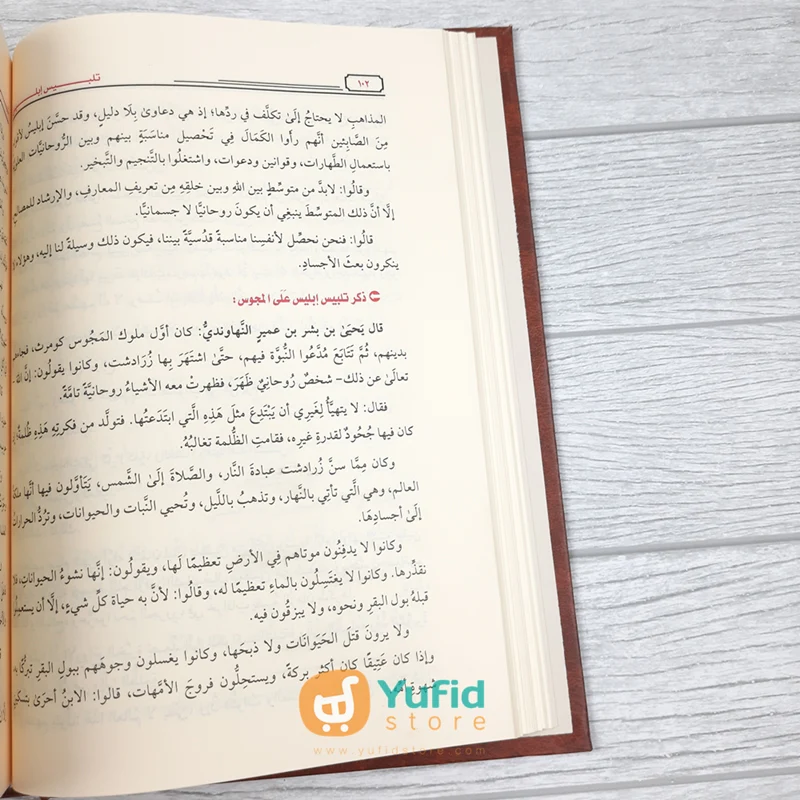 تلبـــيس إبلـ
١٠٢
المذاهبِ لا يحتاجُ إلَىٰ تكلَّف في ردِّها؛ إذ هي دعاوىٰ بِلَا دليلٍ، وقد حسَّنَ إبليسُ
مِنَ الصَّابِئينَ أنَّهم رأَوا الكَمَالَ فِي تَحْصيلِ مناسَبَةٍ بينهم وبين الرُّوحانيَّات
باستعمالِ الطَّهاراتِ، وقوانين ودعوات، واشتغلُوا بالتَّنجيمِ والتَّبخيرِ.
وقالُوا: لابدَّ من متوسِّطٍ بين اللهِ وبين خلقِهِ مِن تعريفِ المعارفِ، والإرشادِ
إلَّا أنَّ ذلك المتوسِّطَ ينبغِي أن يكونَ روحانيًّا لا جسمانيًّا.
قالُوا: فنحن نحصِّل لأنفسِنا مناسبةً قدُسيَّةً بيننا، فيكون ذلك وسيلةً لنا إليه، وهؤلاء
ينكرون بعثَ الأجسادِ.
ذكر تلبيس إبليس عَلَى المجوس :
قال يَحيَىٰ بن بشر بن عميرٍ النَّهاونديُّ: كان أوَّل ملوك المَجُوس كومرث،
بدينهم، ثُمَّ تَتَابَعَ مُدَّعُوا النُّبوَّة فيهم، حتَّىٰ اشتَهَرَ بِها زُرَادشت، وكانوا يقولُون: إنَّ الله
تعالَىٰ عن ذلك- شخصٌ رُوحانِيٌّ ظَهَرَ، فظهرتْ معه الأشياءُ روحانيَّةً تامَّةً.
فقال: لا يتهيأُ لِغَيرِي أن يَبْتَدِعَ مثلَ هَذِهِ الَّتي ابتَدَعتُها. فتولَّد من فكرتِهِ هَذِهِ ظُلمةٌ
كان فيها جُحُودٌ لقدرةِ غيرِه، فقامتِ الظُّلمة تغالبُهُ.
وكان مِمَّا سنَّ زُرادشت عبادةَ النَّار، والصَّلاةَ إلَىٰ الشَّمسِ، يَتَأوَّلون فيها أنَّها
العالم، وهي الَّتي تأتِي بالنَّهار، وتذهبُ باللَّيل، وتُحيي النَّبات والحيوانات، وتَرُدُّ
إلَىٰ أجسادِهَا.
وكانوا لا يدفِنُون موتاهم فِي الأرضِ تعظيمًا لَها، ويقولُون: إنَّها نشوءُ الحيواناتِ
نقذِّرها. وكانوا لا يغتَسِلُون بالماءِ تعظيمًا له، وقالُوا: لأنَّ به حياة كلِّ شيءٍ، إلَّا أن
قبلهُ بول البقرِ ونحوه، ولا يبزقُون فيه.
ولا يرونَ قتلَ الحَيَوَانات ولا ذبحَها، وكانوا يغسلون وجوهَهم ببولِ البقرِ تبرُّكًا به
وإذا كان عَتِيقًا كان أكثرَ بركةً، ويستحِلُّون فروجَ الأمَّهات، قالُوا: الابنُ أحرَىٰ
شهوةِ
YUFid
store
www.yufidstore.com